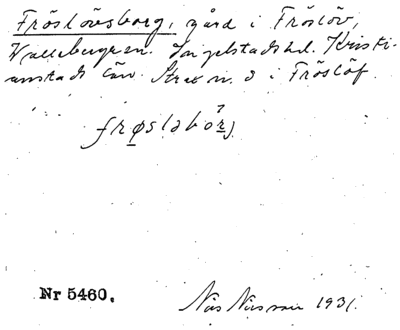 Fröslövsborg, gård i Fröslöv,
Valleberga sn. Ingelstads hd. Kristi-
anstads län. Strax n. o i Fröslöf.
frøsləbȯrj
Nr 5460.
Nils Nilsson 1931.